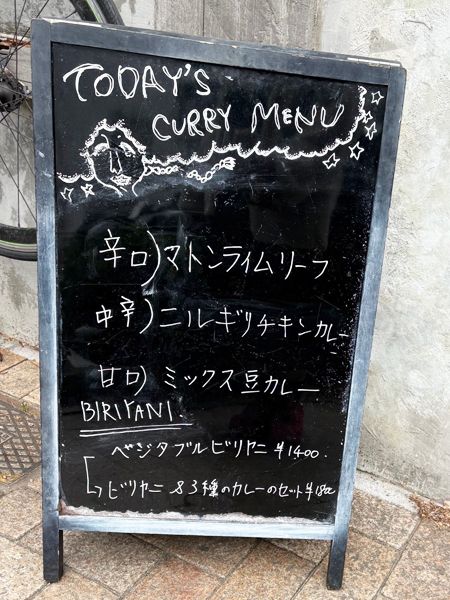 TODAY'S
CURRY MENU
辛口)マトンライムリーフ
中辛)ニルギリチキンカレー
甘口)ミックズ豆カレー
BIRIYANI
ベジタブルビリヤニ ¥1400.
↳ビリヤニ &3種のカレーのセット¥1800